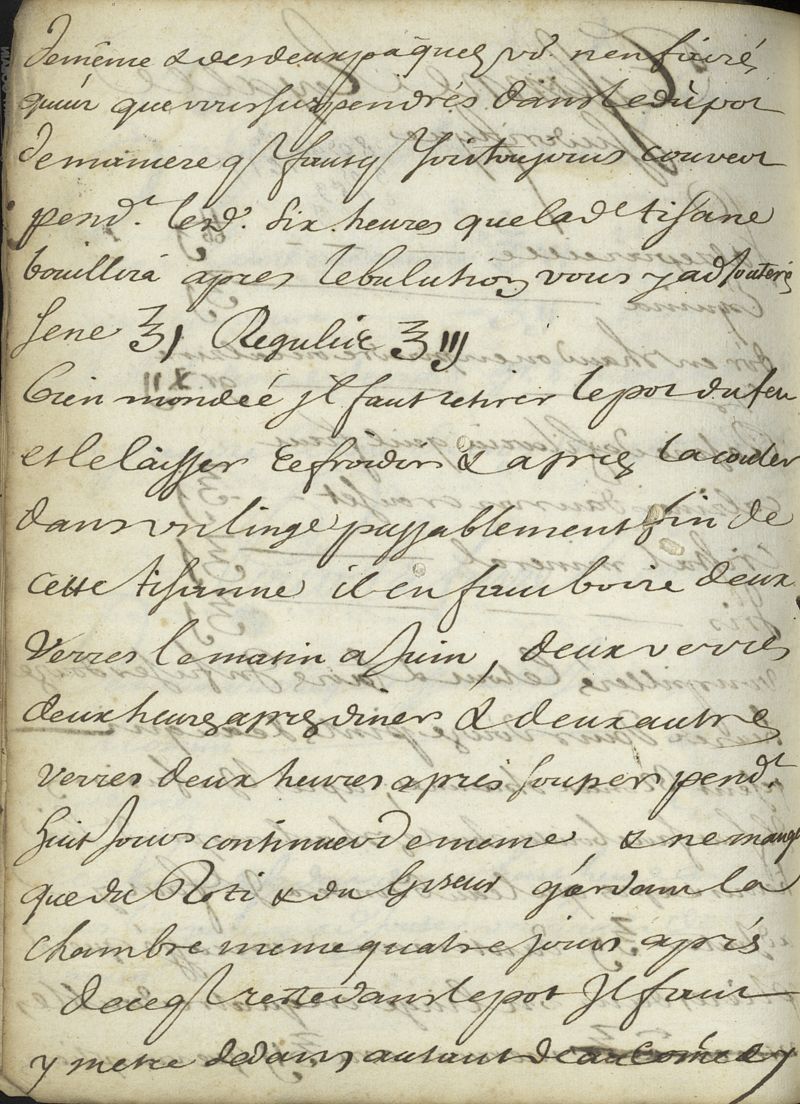 demême & des deux paques vd. n'en fairés
qu'un que vous suspendrés dans ledt pot
demaniere ql faut ql soit toujours couvert
pendt. lesd. six heures que lade tisane
bouillira apres lebulution vous y adjouterés
sene ℥ j Regulice ℥ iij
bien mondeé jl faut retirer le pot du feu
et le laisser refroidir & aprés la couler
dans un linge passablement fin de
cette tisanne il en faut boire deux
verres le matin a jeun, deux verres
deux heures apres diner & deux autres
verres deux heures aprés souper pendt.
huit jours continuer de meme, & ne manger
que du Roti & du gardant la
chambre meme quatre jours aprés
de ce ql reste dans le pot jl faut
y metre dedans autant d'eau comme &